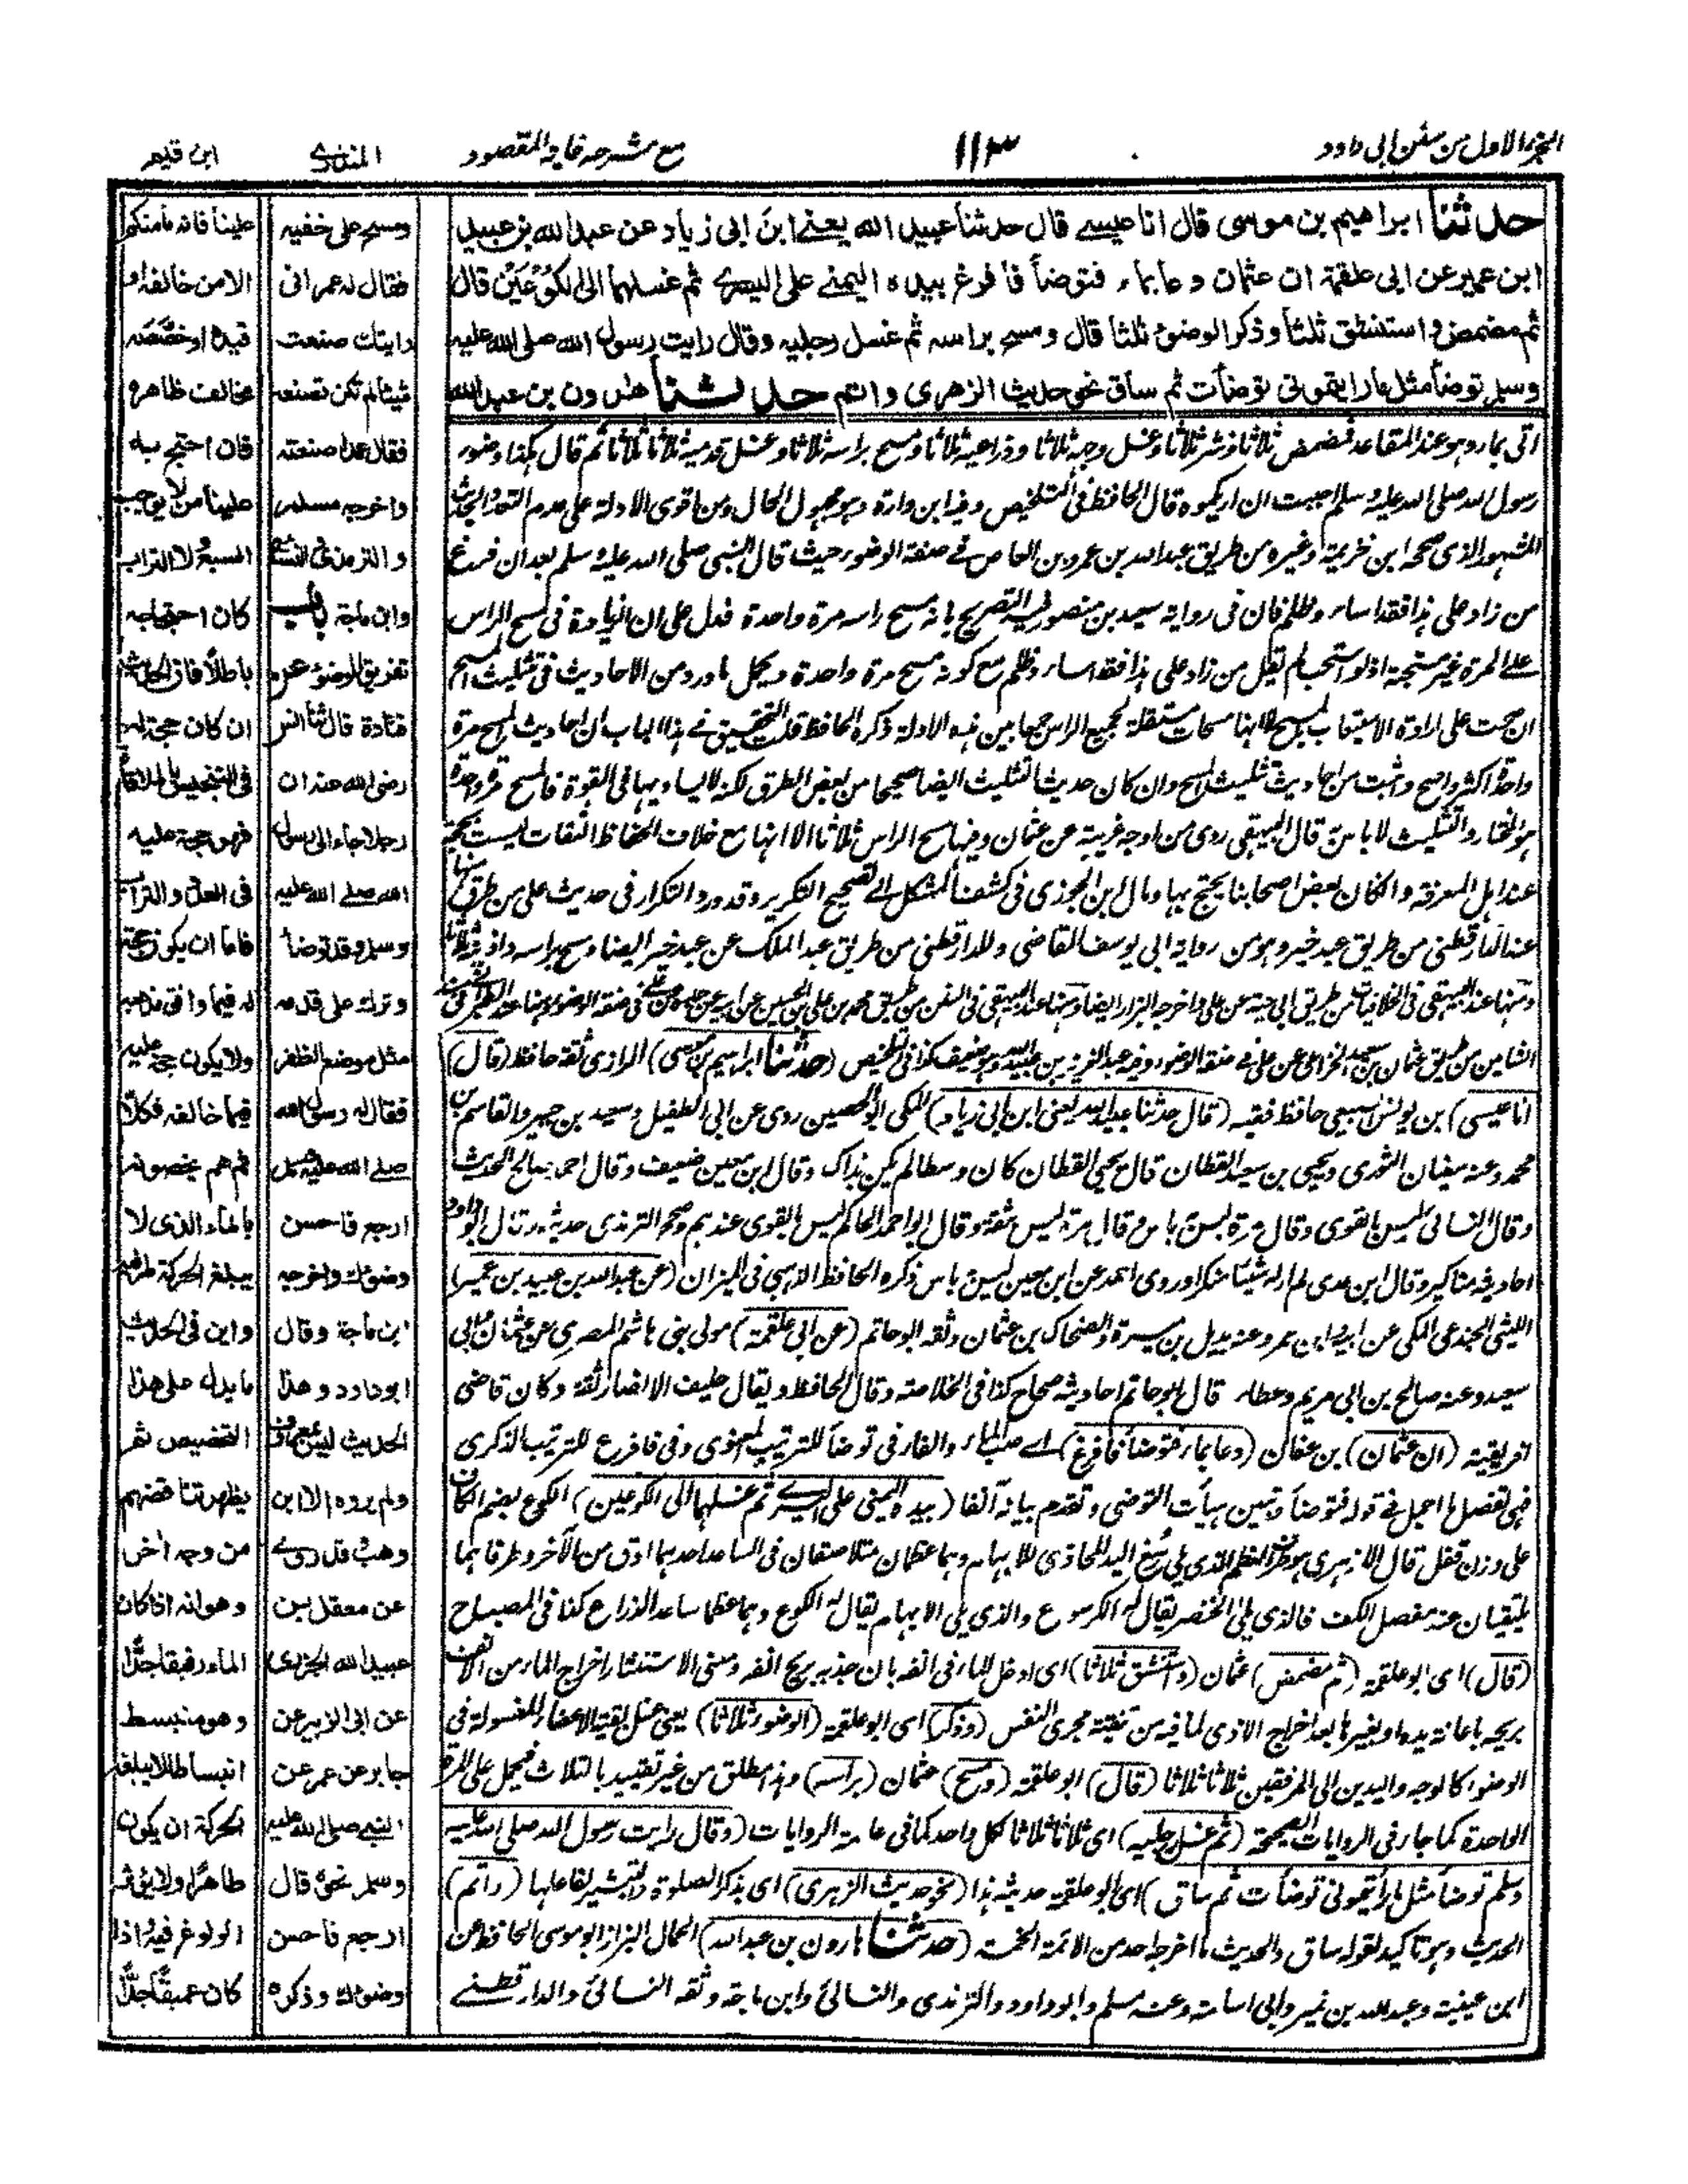 الجزء الاول من سنن ابي داود
١١٣
مع شرحه غاية المقصود
المنذري
ابن قيم
حدثنا ابراهيم بن موسى قال انا عيسے قال حدثنا عبيد الله يعنے ابن ابى زياد عن عبد الله بن عبيد
ابن عمير عن ابى علقمة ان عثمان دعا بماء فتوضأ فأفرغ بيده اليمنے على اليسرے ثم غسلهما الى الكوعين قال
ثم مضمض واستنشق ثلثا وذكر الوضوء ثلثا قال ومسح براسه ثم غسل رجليه وقال رايت رسول الله صلى الله عليه
وسلم توضأ مثل ما رايتمونى توضأت ثم ساق نحو حديث الزهرى واتم حدثنا هارون بن عبد الله
اتى بماء وهو عند المقاعد فمضمض ثلاثا ونثر ثلاثا وغسل وجهه ثلاثا وذراعيه ثلاثا ومسح براسه ثلاثا وغسل قدميه ثلاثا ثلاثا ثم قال هكذا وضوء
رسول الله صلى الله عليه وسلم احببت ان اريكموه قال الحافظ فى التلخيص وفيه ابن دارة وهو مجهول الحال ومن اقوى الادلة على عدم التعدد الحديث
المشهور الذى صححه ابن خزيمة وغيره من طريق عبد الله بن عمرو بن العاص فے صفة الوضوء حيث قال النبى صلى الله عليه وسلم بعد ان فرغ
من زاد على هذا فقد اساء وظلم فان فى رواية سعيد بن منصور فيه التصريح بانه مسح راسه مرة واحدة فدل على ان الزيادة فى مسح الراس
على المرة غير مستحبة اذ لو استحب لم يقل من زاد على هذا فقد اساء وظلم مع كونه مسح مرة واحدة ويحمل ما ورد من الاحاديث فى تثليث المسح
ان صحت على ارادة الاستيعاب بالمسح لا انها مسحات مستقلة لجميع الراس جمعا بين هذه الادلة ذكره الحافظ قلت التحقيق فے هذا الباب ان احاديث المسح مرة
واحدة اكثر واصح واثبت من احاديث تثليث المسح وان كان حديث التثليث ايضا صحيحا من بعض الطرق لكنه لا يساويها فى القوة فالمسح مرة واحدة
هو المختار والتثليث لا باس به قال البيهقى روى من اوجه غريبة عن عثمان وفيها مسح الراس ثلاثا الا انها مع خلاف الحفاظ الثقات ليست بحجة
عند اهل المعرفة وان كان بعض اصحابنا يحتج بها ومال ابن الجوزى فى كشف المشكل الى تصحيح التكرير وقد ورد التكرار فى حديث على من طرق منها
عند الدارقطنى من طريق عبد خير وهو من رواية ابى يوسف القاضى وللدارقطنى من طريق عبد الملك عن عبد خير ايضا ومسح براسه واذنيه ثلاثا
ومنها عند البيهقى فى الخلافيات من طريق ابى حية عن على واخرجه البزار ايضا ومنها عند البيهقى فى السنن من طريق محمد بن على بن الحسين عن ابيه عن جده عن على فى صفة الوضوء ومنها عند الطبرانى فى مسند
الشامين من طريق عثمان بن سعيد الخزاعى عن على فے صفة الوضوء وفيه عبد العزيز بن عبيد الله وهو ضعيف كذا فى التلخيص (حدثنا ابراهيم بن موسى) الرازى ثقة حافظ (قال)
انا عيسى) بن يونس السبيعى حافظ فقيه (قال حدثنا عبيد الله يعنى ابن ابى زياد) المكى ابو الحصين روى عن ابى الطفيل وسعيد بن جبير والقاسم بن
محمد وعنه سفيان الثورى ويحيى بن سعيد القطان قال يحيى القطان كان وسطا لم يكن بذاك وقال ابن معين ضعيف وقال احمد صالح الحديث
وقال النسائى ليس بالقوى وقال مرة ليس به باس وقال مرة ليس بثقة وقال ابو احمد الحاكم ليس بالقوى عندهم وصحح الترمذى حديثه وقال ابو داود
احاديثه مناكير وقال ابن عدى لم ار له شيئا منكرا وروى احمد عن ابن معين ليس به باس ذكره الحافظ الذهبى فى الميزان (عن عبد الله بن عبيد بن عمير)
الليثى الجندعى المكى عن ابيه وابن عمر وعنه بديل بن ميسرة والضحاك بن عثمان وثقه ابو حاتم (عن ابى علقمة) مولى بنى هاشم المصرى عن عثمان وابى
سعيد وعنه صالح بن ابى مريم وعطاء قال ابو حاتم احاديثه صحاح كذا فى الخلاصة وقال الحافظ ويقال حليف الانصار ثقة وكان قاضى
افريقية (ان عثمان) بن عفان (دعا بماء فتوضأ فافرغ) اے صب الماء والفاء فى توضأ للترتيب المعنوى وفى فافرغ للترتيب الذكرى
فهى تفصل ما اجمل فے قوله فتوضأ وتبين هيأت التوضى وتقدم بيانه آنفا (بيده اليمنى على اليسرے ثم غسلهما الى الكوعين) الكوع بضم الكاف
على وزن قفل قال الازهرى هو طرف العظم الذى يلى رسغ اليد المحاذى للابهام وهما عظمان متلاصقان فى الساعد احدهما ادق من الآخر وطرفاهما
يلتقيان عند مفصل الكف فالذى يلى الخنصر يقال له الكرسوع والذى يلى الابهام يقال له الكوع وهما عظما ساعد الذراع كذا فى المصباح
(قال) اى ابو علقمة (ثم مضمض) عثمان (واستنشق ثلاثا) اى ادخل الماء فى انفه بان جذبه بريح انفه ومعنى الاستنثار اخراج الماء من الانف
بريحه باعانة يده او بغيرها بعد اخراج الاذى لما فيه من تنقية مجرى النفس (وذكر) اى ابو علقمة (الوضوء ثلاثا) يعنى غسل بقية الاعضاء المغسولة فى
الوضوء كالوجه واليدين الى المرفقين ثلاثا ثلاثا (قال) ابو علقمة (ومسح) عثمان (براسه) وهذا مطلق من غير تقييد بالثلاث فيحمل على المرة
الواحدة كما جاء فى الروايات الصحيحة (ثم غسل رجليه) اى ثلاثا ثلاثا كل واحد كما فى عامة الروايات (وقال رايت رسول الله صلى الله عليه
وسلم توضأ مثل ما رأيتمونى توضأت ثم ساق) اى ابو علقمة حديثه هذا (نحو حديث الزهرى) اى بذكر الصلوة والتبشير لفاعلها (واتم)
الحديث وهو تاكيد لقوله ساق والحديث ما اخرجه احد من الائمة الخمسة (حدثنا هارون بن عبد الله) الحمال البزاز ابو موسى الحافظ عن
ابن عيينة وعبد الله بن نمير وابى اسامة وعنه مسلم وابو داود والترمذى والنسائى وابن ماجة وثقه النسائى والدارقطنے
ومسح على خفيه
فقال له عمر انى
رايتك صنعت
شيئا لم تكن تصنعه
فقال عمدا صنعته
واخرجه مسلم
والترمذى والنسائى
وابن ماجة
تفريق الوضوء عن
قتادة قال ثنا انس
رضى الله عنه ان
رجلا جاء الى رسول
الله صلے الله عليه
وسلم وقد توضأ
وترك على قدمه
مثل موضع الظفر
فقال له رسول الله
صلے الله عليه وسلم
ارجع فاحسن
وضوءك واخرجه
ابن ماجة وقال
ابو داود وهذا
الحديث ليس بمعروف
ولم يروه الا ابن
وهب وقد روے
عن معقل بن
عبيد الله الجزرى
عن ابى الزبير عن
جابر عن عمر عن
النبى صلى الله عليه
وسلم نحوه قال
ارجع فاحسن
وضوءك وذكره
علينا فانه ما منكم
الا من خالفه او
قيده او خصصه
مخالف ظاهره
فان احتج به
علينا من لا يوجب
التسبيع ولا التراب
كان احتجاجه
باطلا فان الحديث
ان كان حجة له
فى التنجيس بالملاقاة
فهو حجة عليه
فى العدد والتراب
فاما ان يكون حجة
له فيما وافق مذهبه
ولا يكون حجة عليه
فيما خالفه فكلا
ثم هم يخصونه
بالماء الذى لا
يبلغ الحركة طرفيه
واين فى الحديث
ما يدل على هذا
التخصيص ثم
يظهر تناقضهم
من وجه اخر
وهو انه اذا كان
الماء رقيقا جدًا
وهو منبسط
انبساطا لا يبلغه
الحركة ان يكون
طاهرًا ولا يؤثر
الولوغ فيه واذا
كان عميقًا جدًا